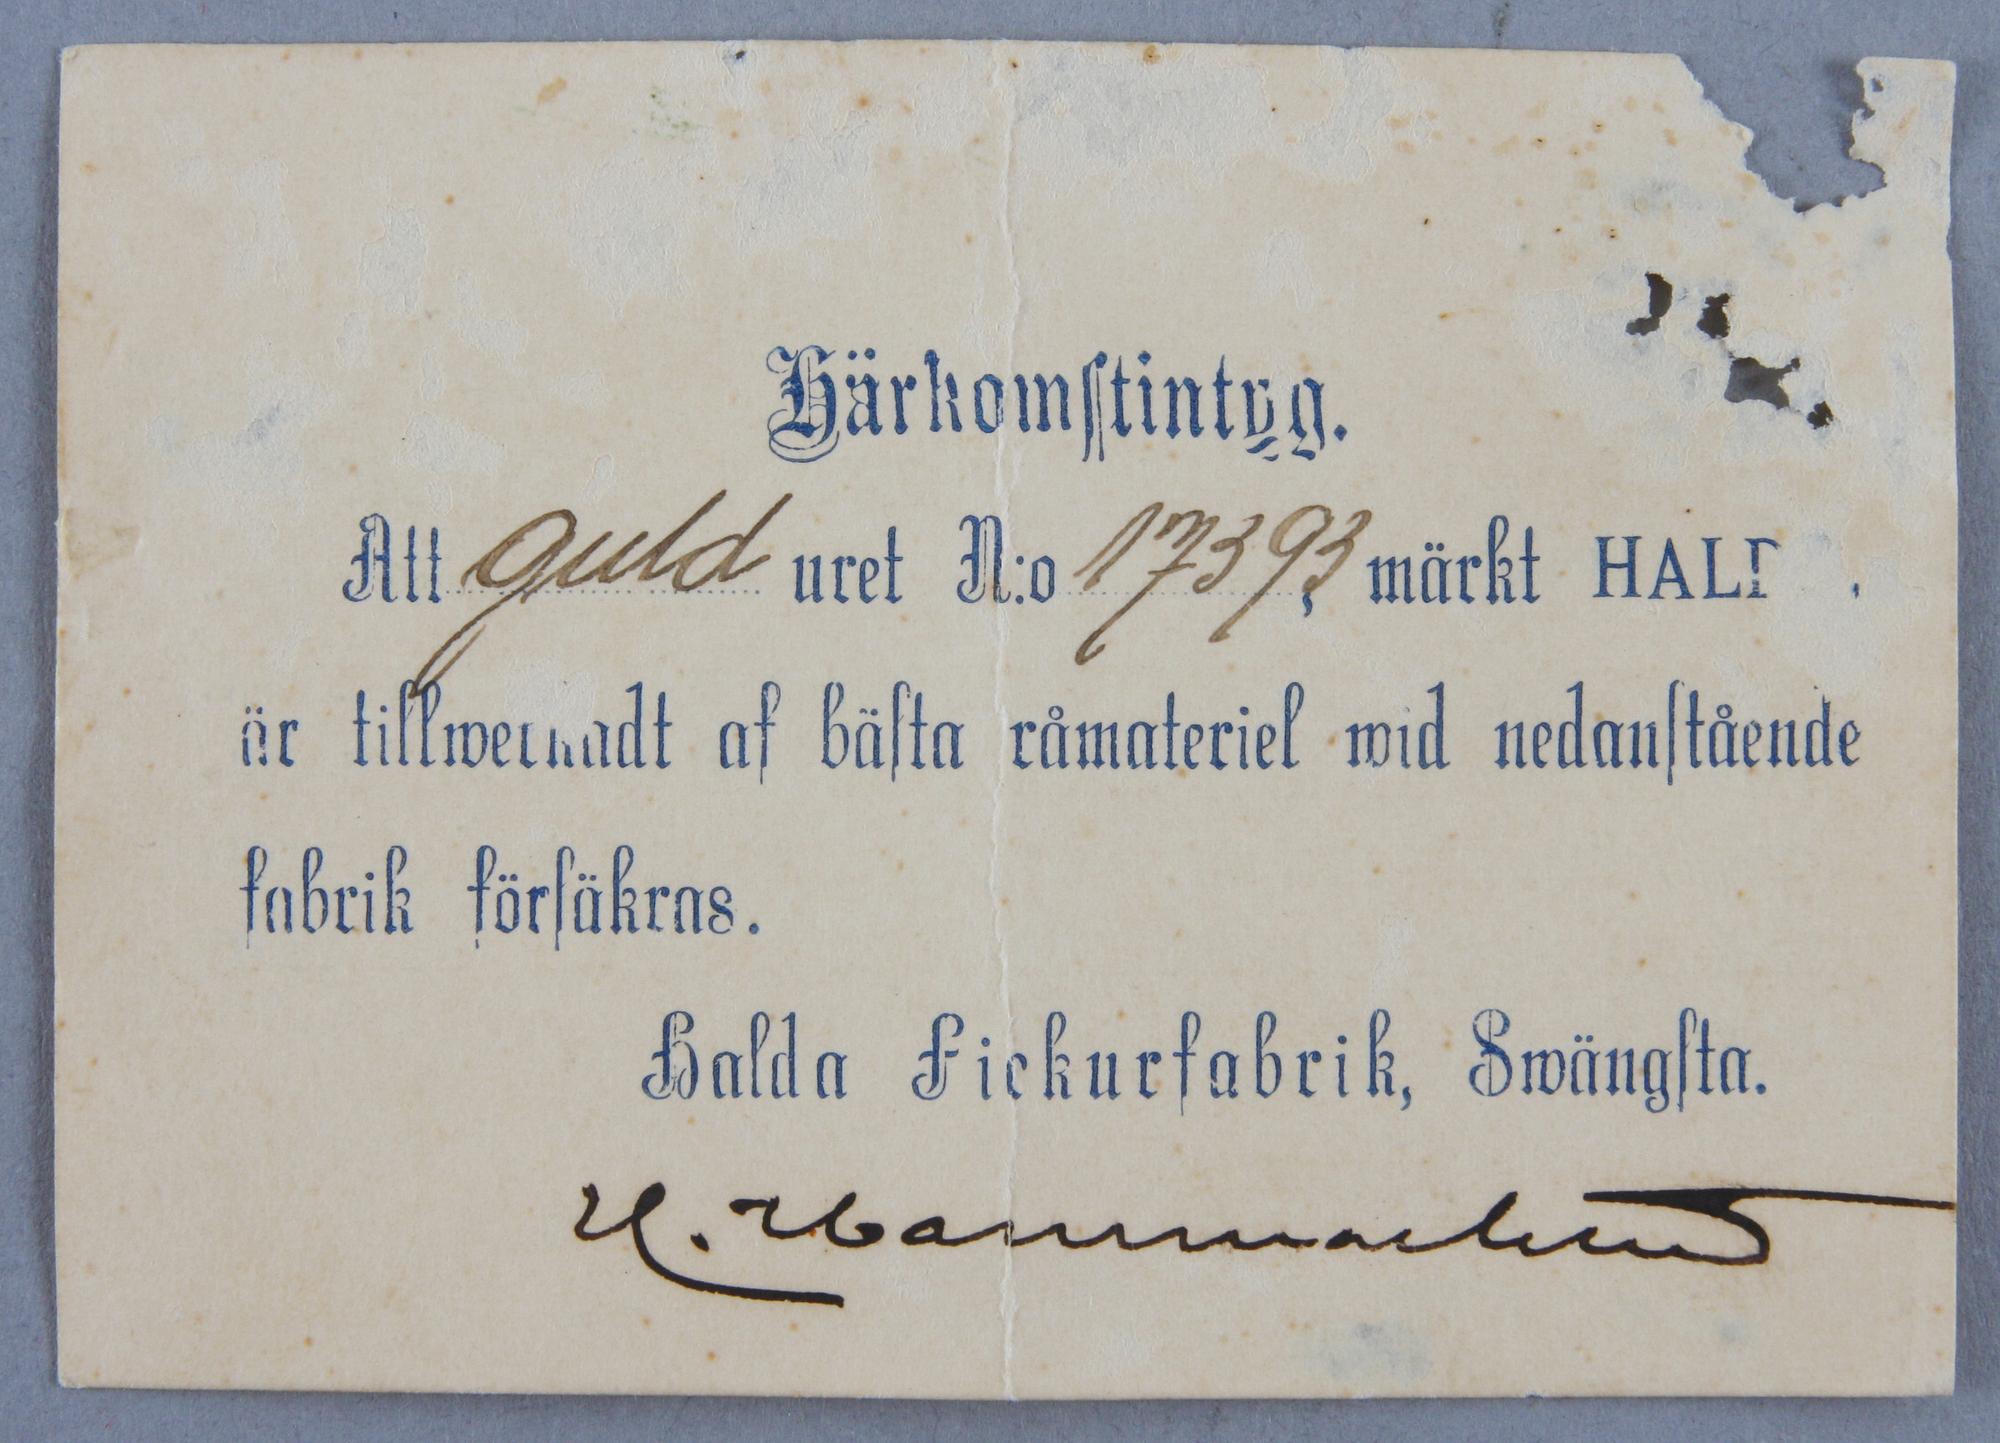 Härkomstintyg.
Att guld uret N:o 17393, märkt HALD .
är tillwerkadt af bästa råmateriel wid nedanstående
fabrik försäkras.
Halda Fickurfabrik, Swängsta.
H. Hammarlund